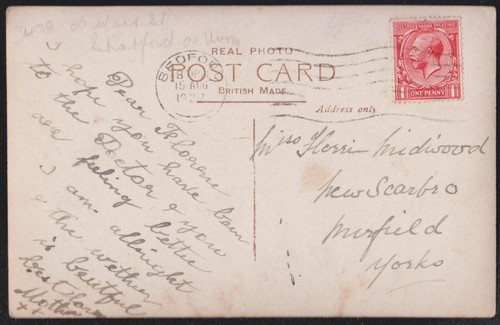 REAL PHOTO
POST CARD
BRITISH MADE
Address only
ONE PENNY
BEDFORD
15 AUG
Dear Florene
I hope you have been
to the Doctor & you
are feeling bettie
I am allright
& the wether
is beutiful
best love
Mother
xx
Miss Florrie Midwood
New Scarbro
Mirfield
Yorks